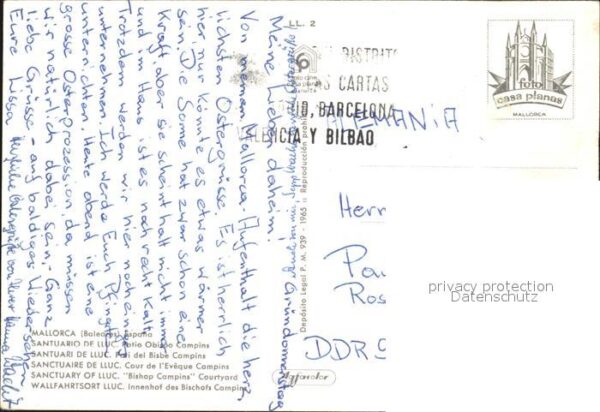 Gründonnerstag
Meine Lieben daheim!
Von meinem Mallorca-Aufenthalt die herz-
lichsten Ostergrüsse. Es ist herrlich
hier nur könnte es etwas wärmer
sein. Die Sonne hat zwar schon eine
Kraft aber sie scheint halt nicht immer
und im Haus ist es noch recht kalt.
Trotzdem werden wir hier noch einiges
unternehmen. Ich werde Euch Pfingsten
unterrichten. Heute abend ist eine
grosse Osterprozession, da müssen
wir natürlich dabei sein. Ganz
liebe Grüsse - auf baldiges Wiedersehen
Eure
Herzliche Ostergrüße von Eurer
LL. 2
DISTRITO
CARTAS
BARCELONA
VALENCIA Y BILBAO
foto
casa planas
MALLORCA
ALEMANIA
Herr
Pa
Ros
DDR
privacy protection
Datenschutz
Depósito Legal P. M. 939 - 1965 Reproducción prohi
MALLORCA (Baleares) España
SANTUARIO DE LLUC. Patio Obispo Campins
SANTUARI DE LLUC. Pati del Bisbe Campins
SANCTUAIRE DE LLUC. Cour de l'Evêque Campins
SANCTUARY OF LLUC. "Bishop Campins" Courtyard
WALLFAHRTSORT LLUC. Innenhof des Bischofs Campins